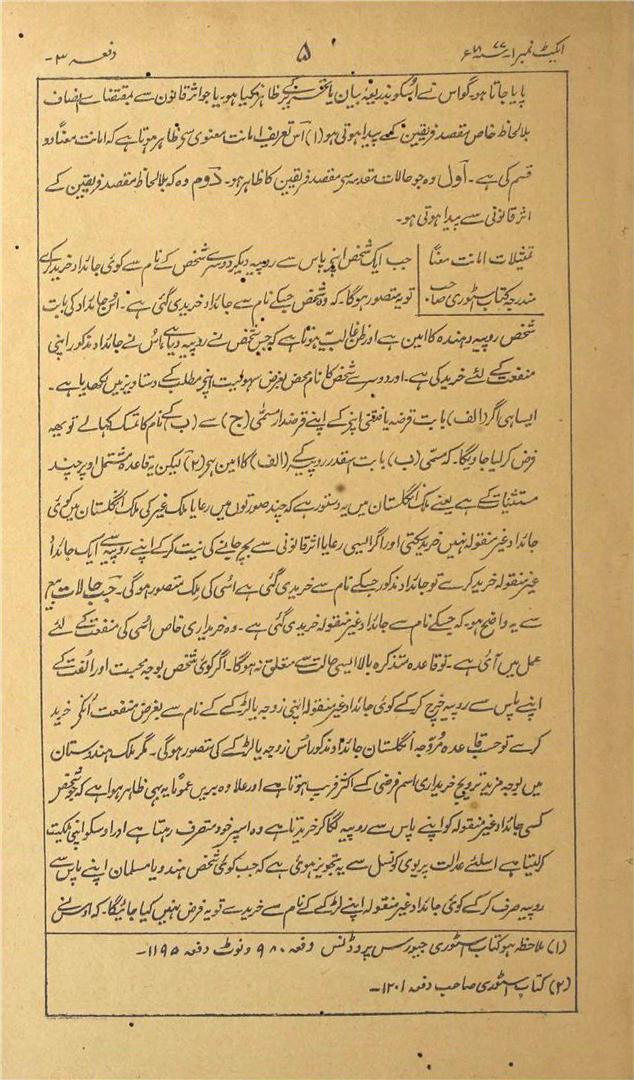 ایکٹ نمبر ۱ سنہ ۷۷ ۱۸ء
۵
دفعہ ۳-
پایا جاتا ہو۔ گو اس نے اُسکو بذریعۂ بیان یا تحریر کے ظاہر کیا ہو۔ یا جو اثر قانون سے بمقتضاے انصاف
بلالحاظ خاص مقصد فریقین کے پیدا ہوتی ہو (۱) اس تعریف امانت معنوی سے ظاہر ہوتا ہے کہ امانت معناً دو
قسم کی ہے۔ اول وہ جو حالات مقدمہ سے مقصد فریقین کا ظاہر ہو۔ دوم وہ کہ بلالحاظ مقصد فریقین کے
اثر قانونی سے پیدا ہوتی ہو۔
تمثیلات امانت معناً
مندرجہ کتاب اسٹوری صاحب
جب ایک شخص اپنے پاس سے روپیہ دیکر دوسرے شخص کے نام سے کوئی جائداد خریدے
تو یہ متصور ہوگا۔ کہ وہ شخص جسکے نام سے جائداد خریدی گئی ہے۔ اُس جائداد کی بابت
شخص روپیہ دہندہ کا امین ہے اور ظن غالب یہ ہوتا ہے کہ جس شخص نے روپیہ دیا ہے اُس نے جائداد مذکور اپنی
منفعت کے لئے خرید کی ہے۔ اور دوسرے شخص کا نام محض بغرض سہولیت اپنے مطلب کے دستاویز میں لکھدیا ہے۔
ایسا ہی اگر (الف) بابت قرضہ یافتنی اپنے کے اپنے قرضدار مسمّی (ج) سے (ب) کے نام کا تمسک لکھالے تو یہہ
فرض کر لیا جاویگا۔ کہ مسمّی (ب) بابت اسقدر روپیہ کے (الف) کا امین ہے (۲) لیکن یہ قاعدہ مشتمل اوپر چند
مستثنیات کے ہے یعنے ملک انگلستان میں یہ دستور ہے کہ چند صورتوں میں رعایا ملک غیر کی ملک انگلستان میں کوئی
جائداد غیر منقولہ نہیں خرید سکتی اور اگر ایسی رعایا اثر قانونی سے بچ جانے کی نیت کرکے اپنے روپیہ سے ایک جائداد
غیر منقولہ خرید کرے تو جائداد مذکور جسکے نام سے خریدی گئی ہے اُسی کی ملک متصور ہوگی۔ جب حالات بیع
سے یہ واضح ہو۔ کہ جسکے نام سے جائداد غیر منقولہ خریدی گئی ہے۔ وہ خریداری خاص اُسی کی منفعت کے لئے
عمل میں آئی ہے۔ تو قاعدہ متذکرہ بالا ایسی حالت سے متعلق نہ ہوگا۔ اگر کوئی شخص بوجہ محبت اور اُلفت کے
اپنے پاس سے روپیہ خرچ کرکے کوئی جائداد غیر منقولہ اپنی زوجہ یا لڑکے کے نام سے بغرض منفعت اُنکی خرید
کرے تو حسب قاعدہ مُروّجہ انگلستان جائداد مذکور اُس زوجہ یا لڑکے کی متصور ہوگی۔ مگر ملک ہندوستان
میں بوجہ مزید ترویج خریداری اسم فرضی کے اکثر فریب ہوتا ہے اور علاوہ بریں عموماً یہ بھی ظاہر ہوا ہے کہ جو شخص
کسی جائداد غیر منقولہ کو اپنے پاس سے روپیہ لگا کر خریدتا ہے وہ اسپر خود متصرف رہتا ہے اور اوسکو اپنی ملکیت
کر لیتا ہے اسلئے عدالت پریوی کونسل سے یہ تجویز ہوئی ہے کہ جب کوئی شخص ہندو یا مسلمان اپنے پاس سے
روپیہ صرف کرکے کوئی جائداد غیر منقولہ اپنے لڑکے کے نام سے خریدے تو یہ فرض نہیں کیا جائیگا۔ کہ اُس نے
(۱) ملاحظہ ہو کتاب اسٹوری جیورس پروڈنس دفعہ ۹۸۰ و نوٹ دفعہ ۱۱۹۵-
(۲) کتاب اسٹوری صاحب دفعہ ۱۲۰۱-